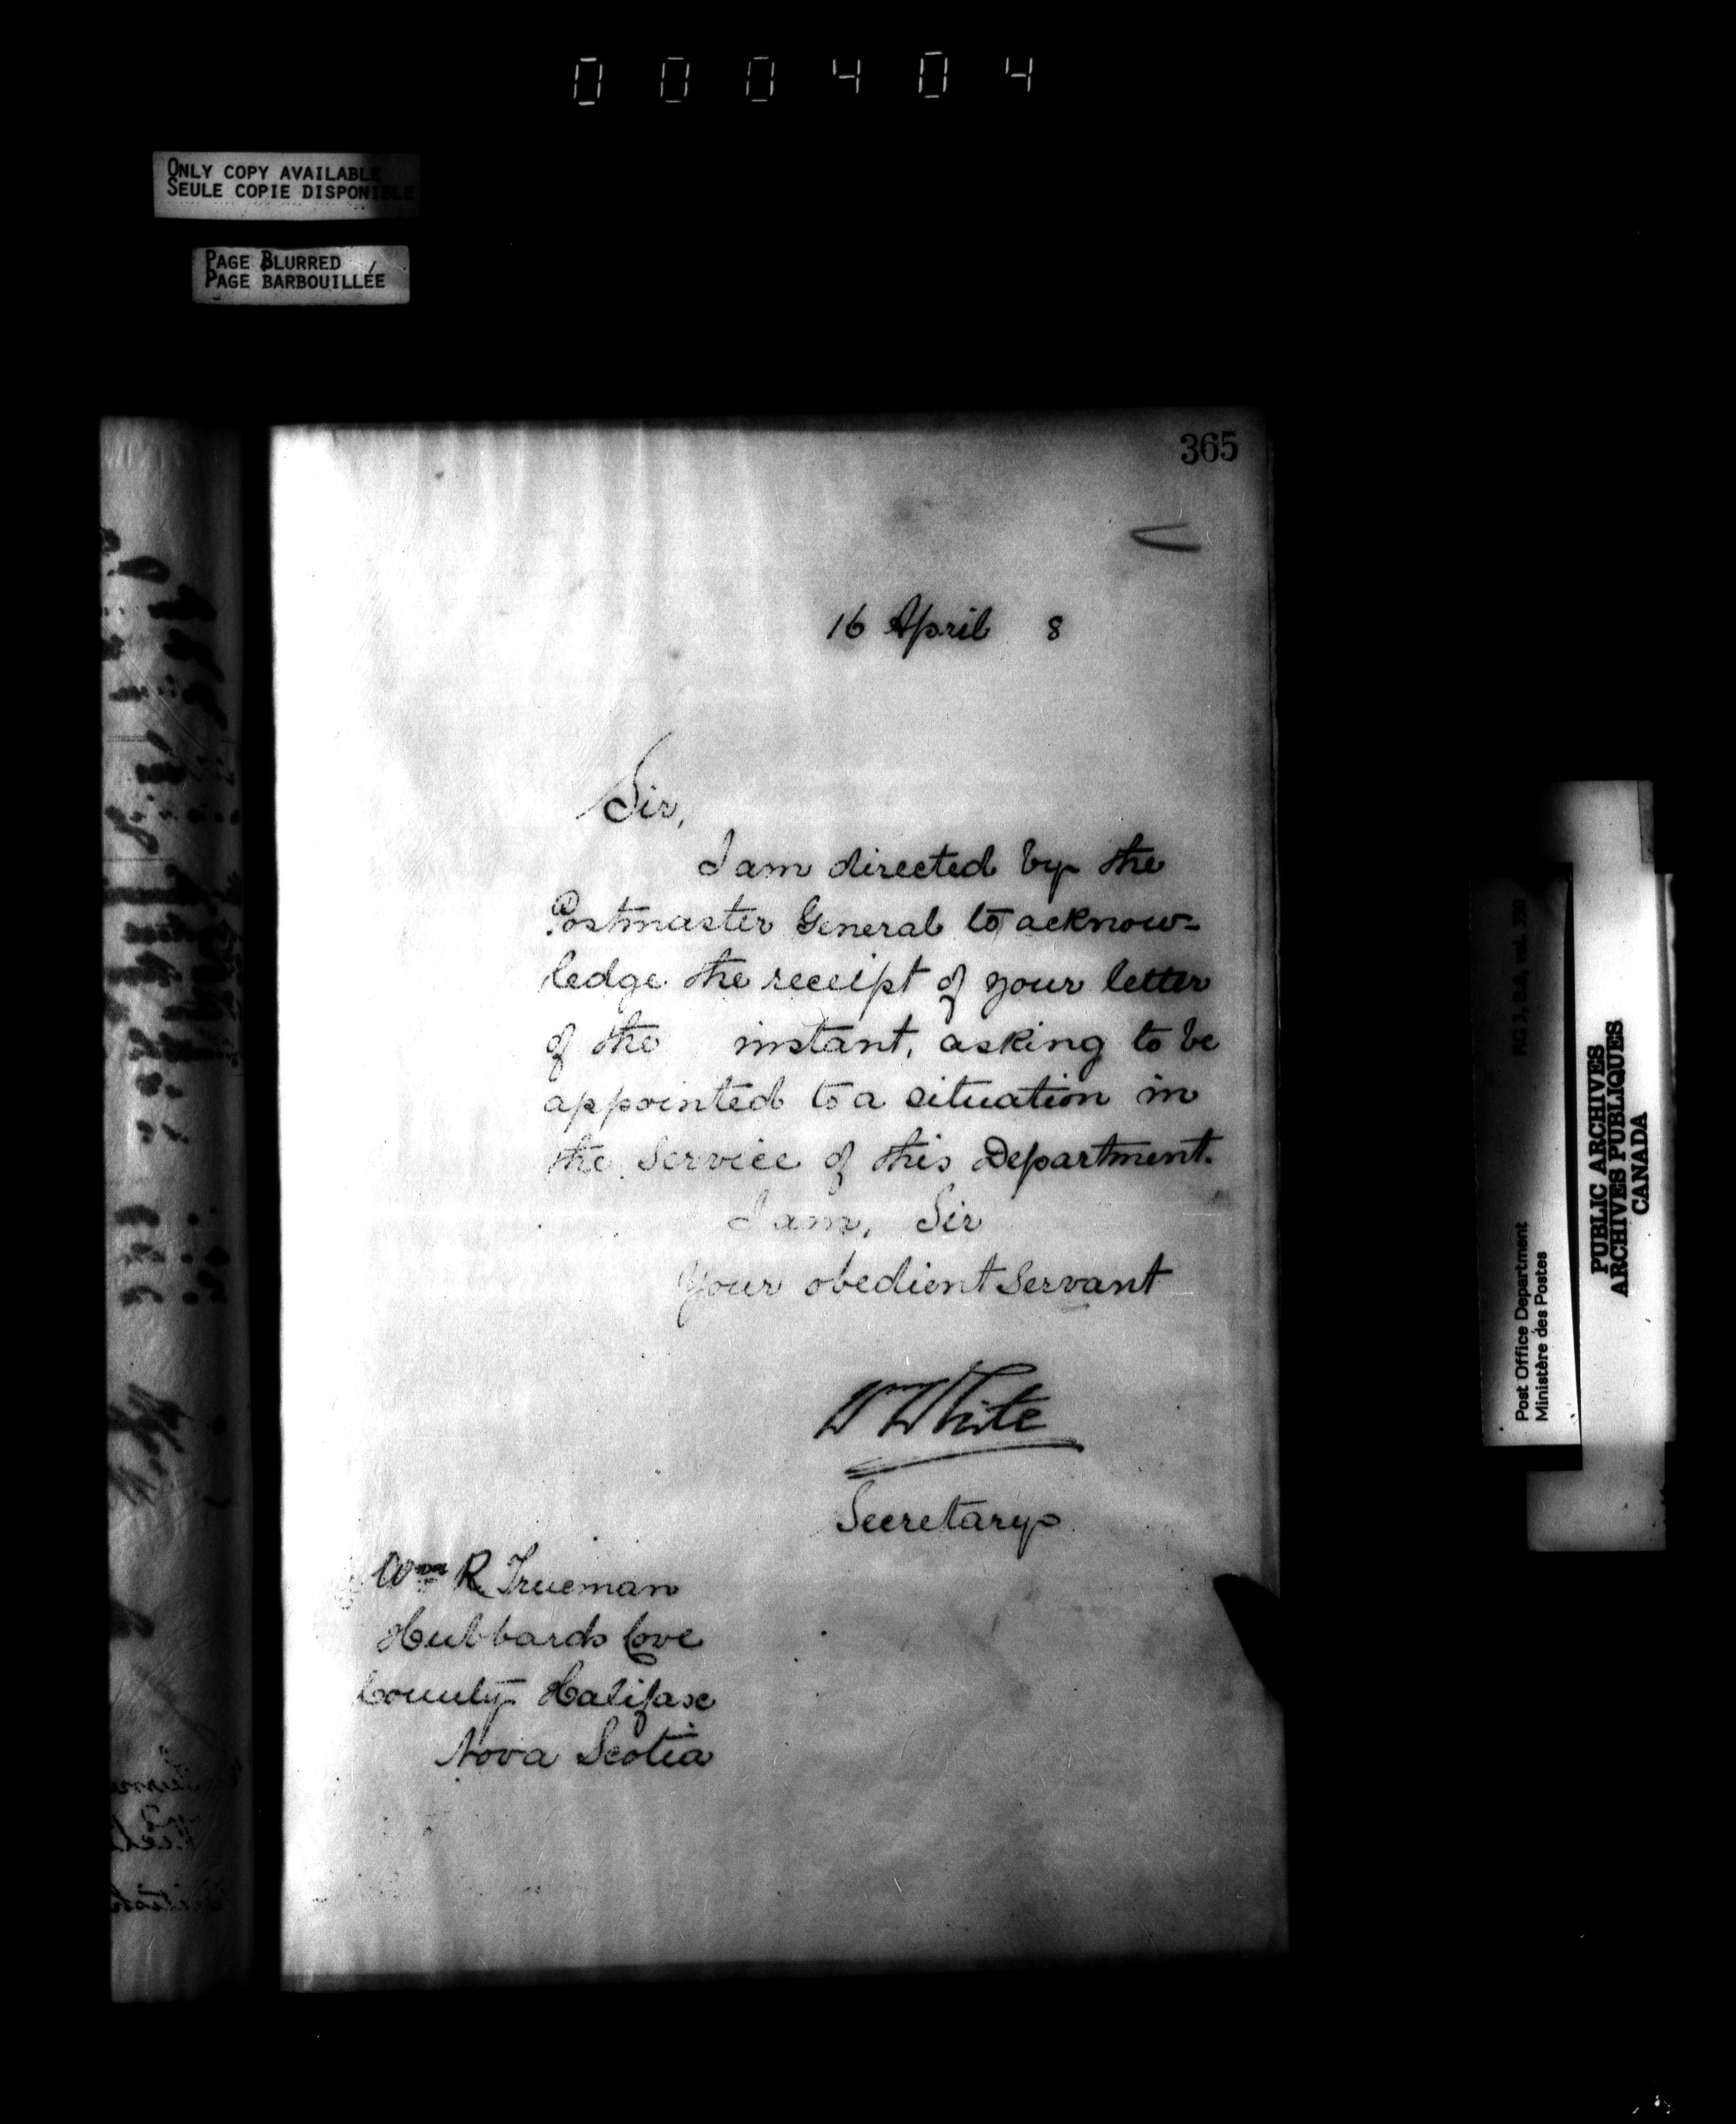 000404
ONLY COPY AVAILABLE
SEULE COPIE DISPONIBLE
PAGE BLURRED
PAGE BARBOUILLÉE
365
16 April 8
Sir,
I am directed by the
Postmaster General to acknow=
ledge the receipt of your letter
of the instant, asking to be
appointed to a situation in
the Service of this Department.
I am, Sir
Your obedient Servant
Wm White
Secretary
Wm R. Trueman
Hubbards Cove
County Halifax
Nova Scotia
RG 3, B.4, vol. 350
Post Office Department
Ministère des Postes
PUBLIC ARCHIVES
ARCHIVES PUBLIQUES
CANADA